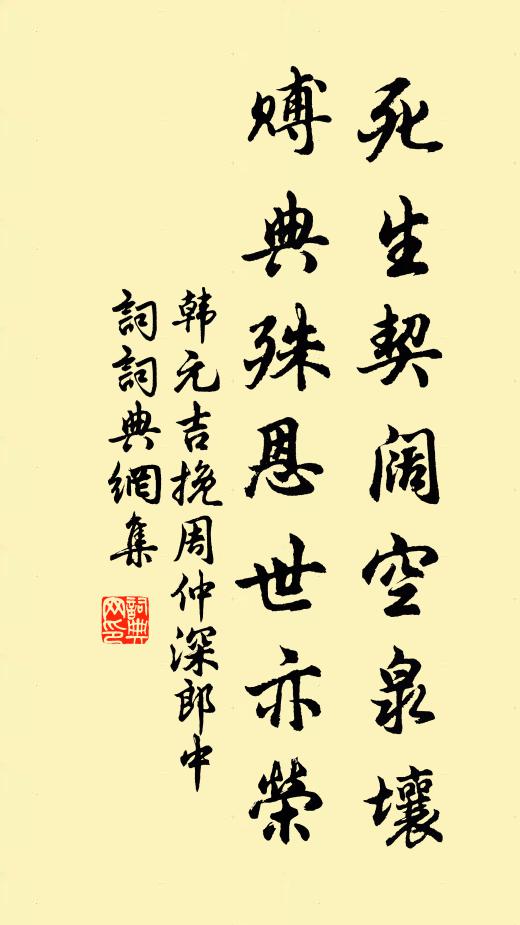 死生契阔空泉壤
赙典殊恩世亦榮
韩元吉挽周仲深郎中
詞詞典網集
詞典网印